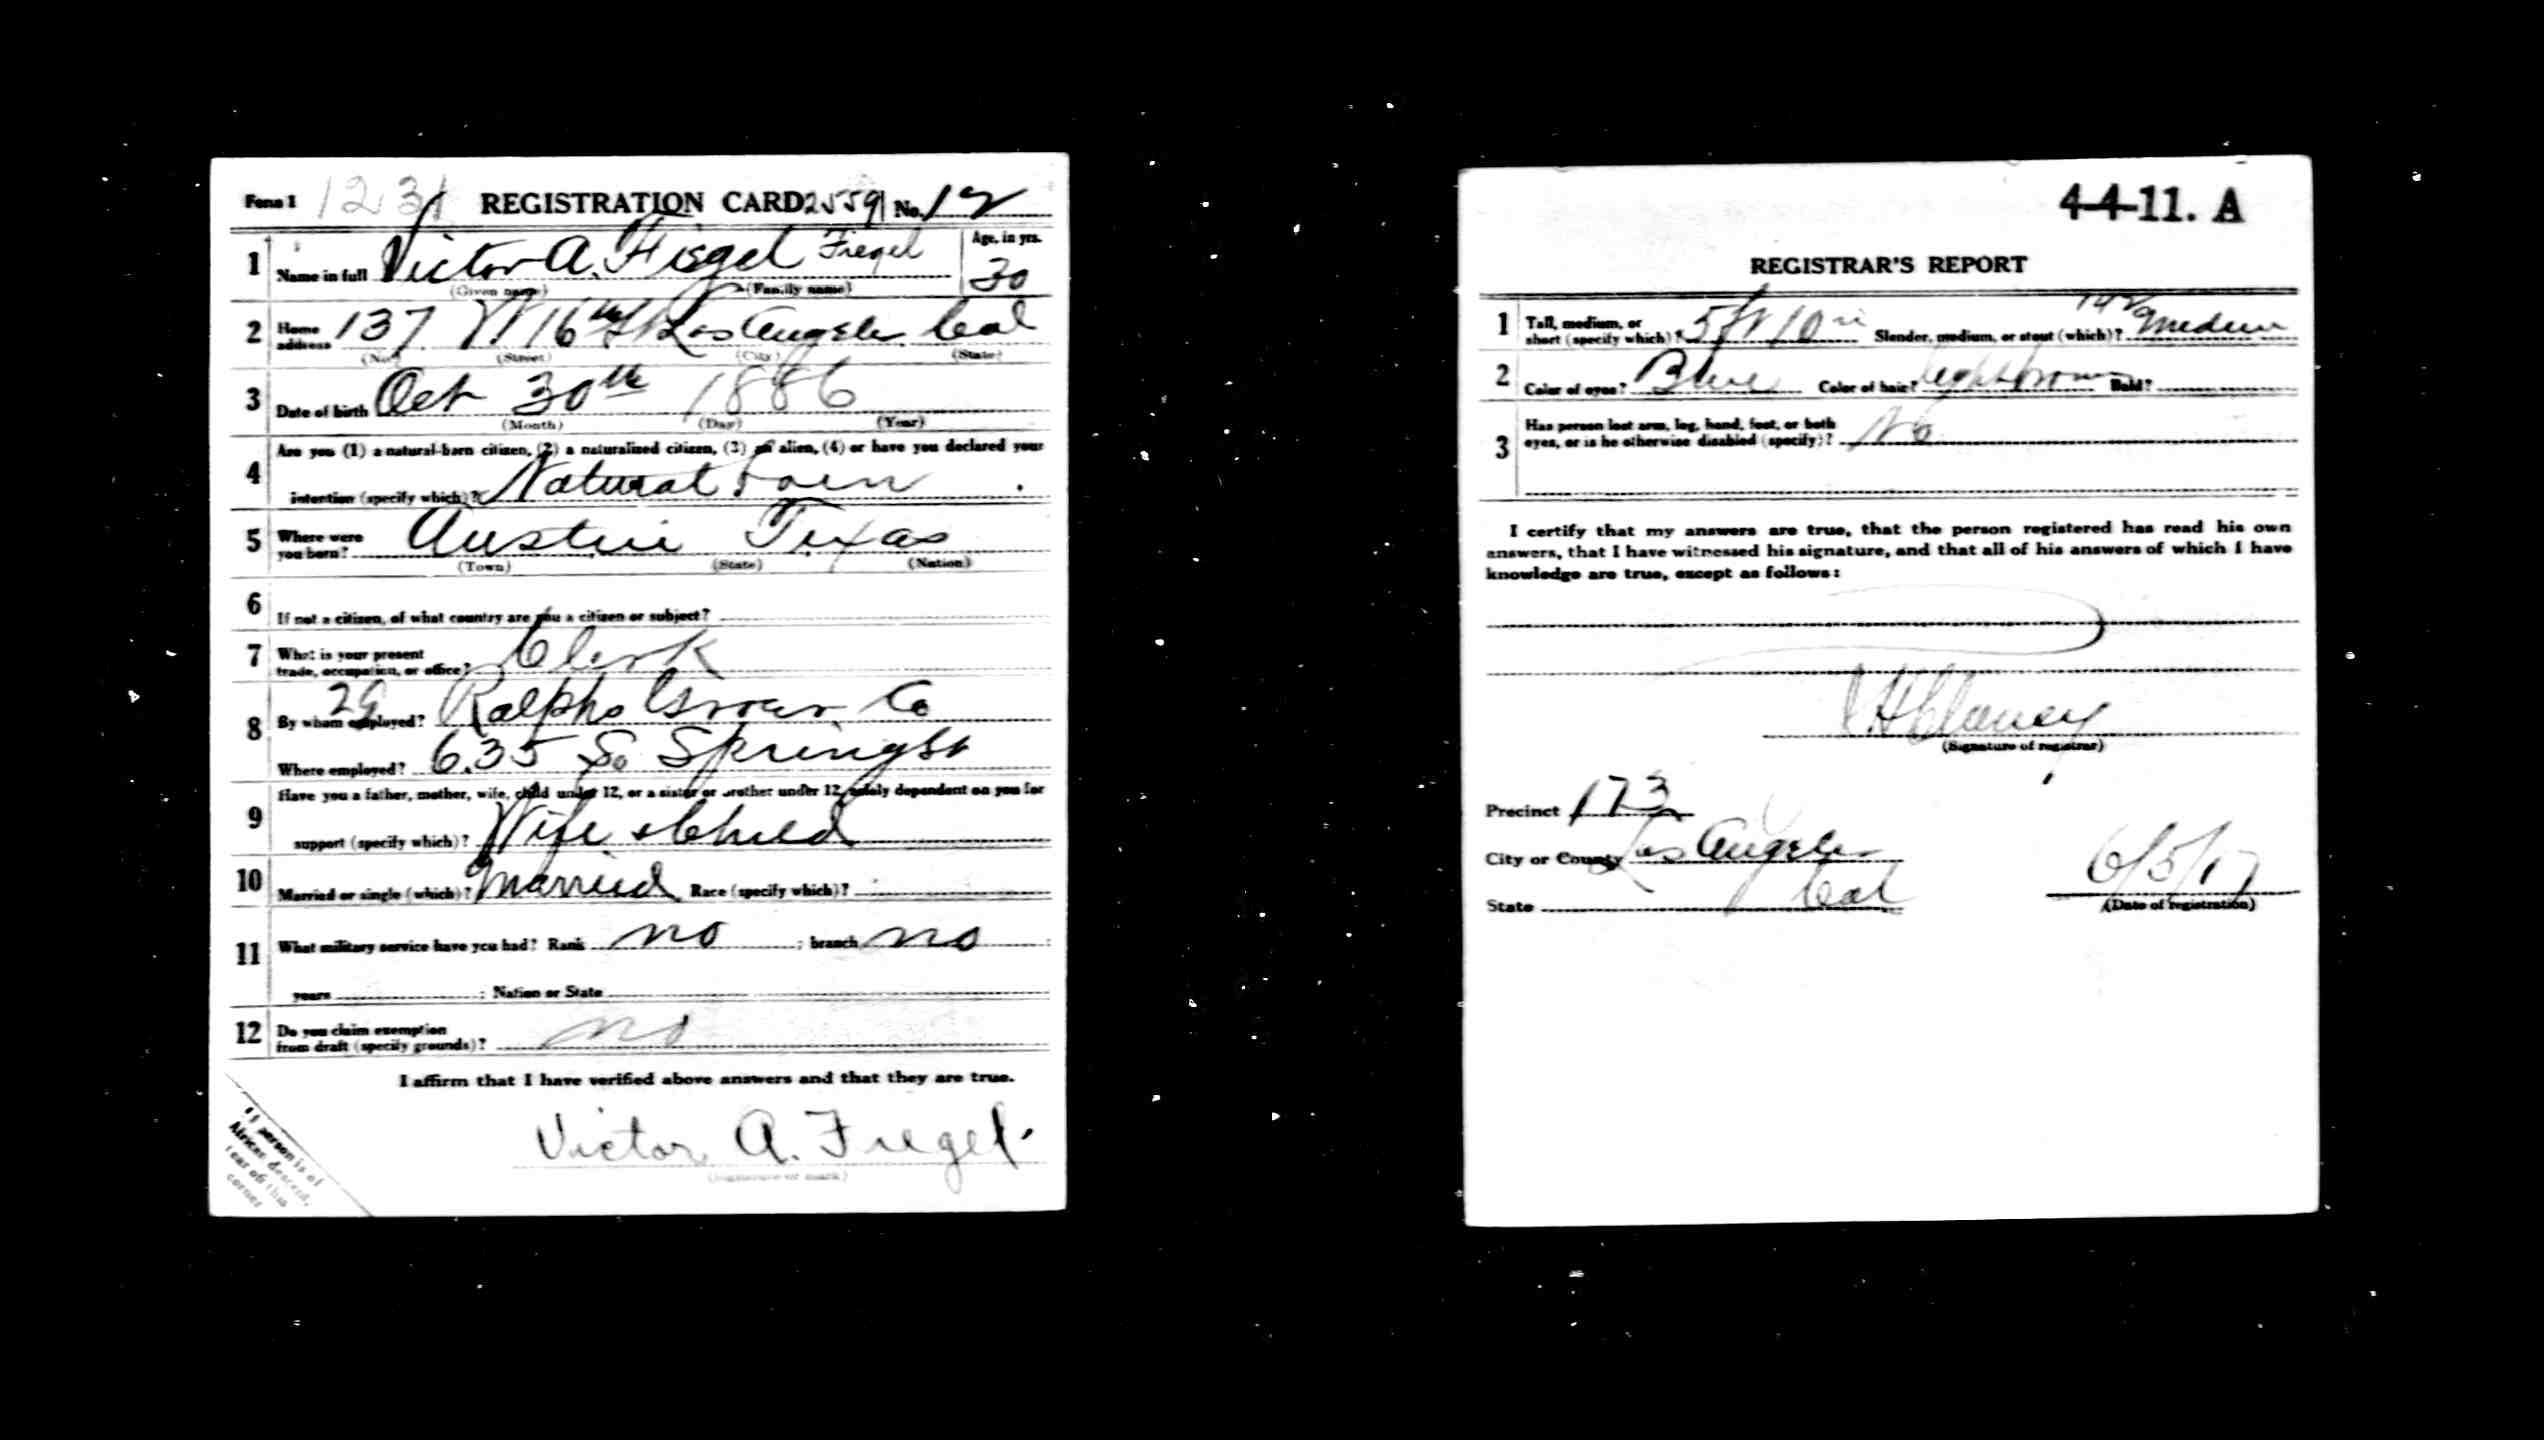 Form 1 1231 REGISTRATION CARD 2559 No. 12
1 Name in full Victor A. Fisgel Fiegel Age, in yrs. 30
(Given name) (Family name)
2 Home address 137 W 16th St Los Angeles Cal
(No.) (Street) (City) (State)
3 Date of birth Oct 30th 1886
(Month) (Day) (Year)
4 Are you (1) a natural-born citizen, (2) a naturalized citizen, (3) an alien, (4) or have you declared your
intention (specify which)? Natural born
5 Where were you born? Austin Texas
(Town) (State) (Nation)
6 If not a citizen, of what country are you a citizen or subject?
7 What is your present trade, occupation, or office? Clerk
29
8 By whom employed? Ralphs Co
Where employed? 635 So Spring St
9 Have you a father, mother, wife, child under 12, or a sister or brother under 12, solely dependent on you for
support (specify which)? Wife & Child
10 Married or single (which)? Married Race (specify which)?
11 What military service have you had? Rank no ; branch no ;
years ; Nation or State
12 Do you claim exemption from draft (specify grounds)? no
I affirm that I have verified above answers and that they are true.
Victor A. Fiegel
(Signature or mark)
If person is of
African descent,
tear off this
corner
4-4-11. A
REGISTRAR'S REPORT
1 Tall, medium, or short (specify which)? 5 ft 10 in Slender, medium, or stout (which)? Medium
2 Color of eyes? Blue Color of hair? light brown Bald?
3 Has person lost arm, leg, hand, foot, or both
eyes, or is he otherwise disabled (specify)? No
I certify that my answers are true, that the person registered has read his own
answers, that I have witnessed his signature, and that all of his answers of which I have
knowledge are true, except as follows:
(Signature of registrar)
Precinct 173
City or County Los Angeles
State Cal 6/5/17
(Date of registration)